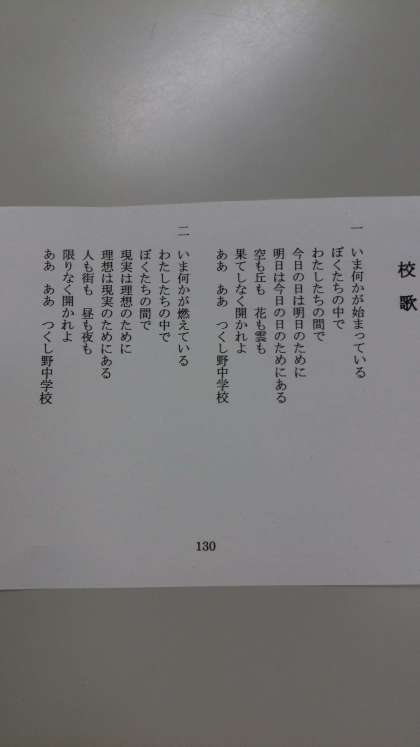 校歌
一
いま何かが始まっている
ぼくたちの中で
わたしたちの間で
今日の日は明日のために
明日は今日の日のためにある
空も丘も　花も雲も
果てしなく開かれよ
ああ　ああ　つくし野中学校
二
いま何かが燃えている
わたしたちの中で
ぼくたちの間で
現実は理想のために
理想は現実のためにある
人も街も　昼も夜も
限りなく開かれよ
ああ　ああ　つくし野中学校
130